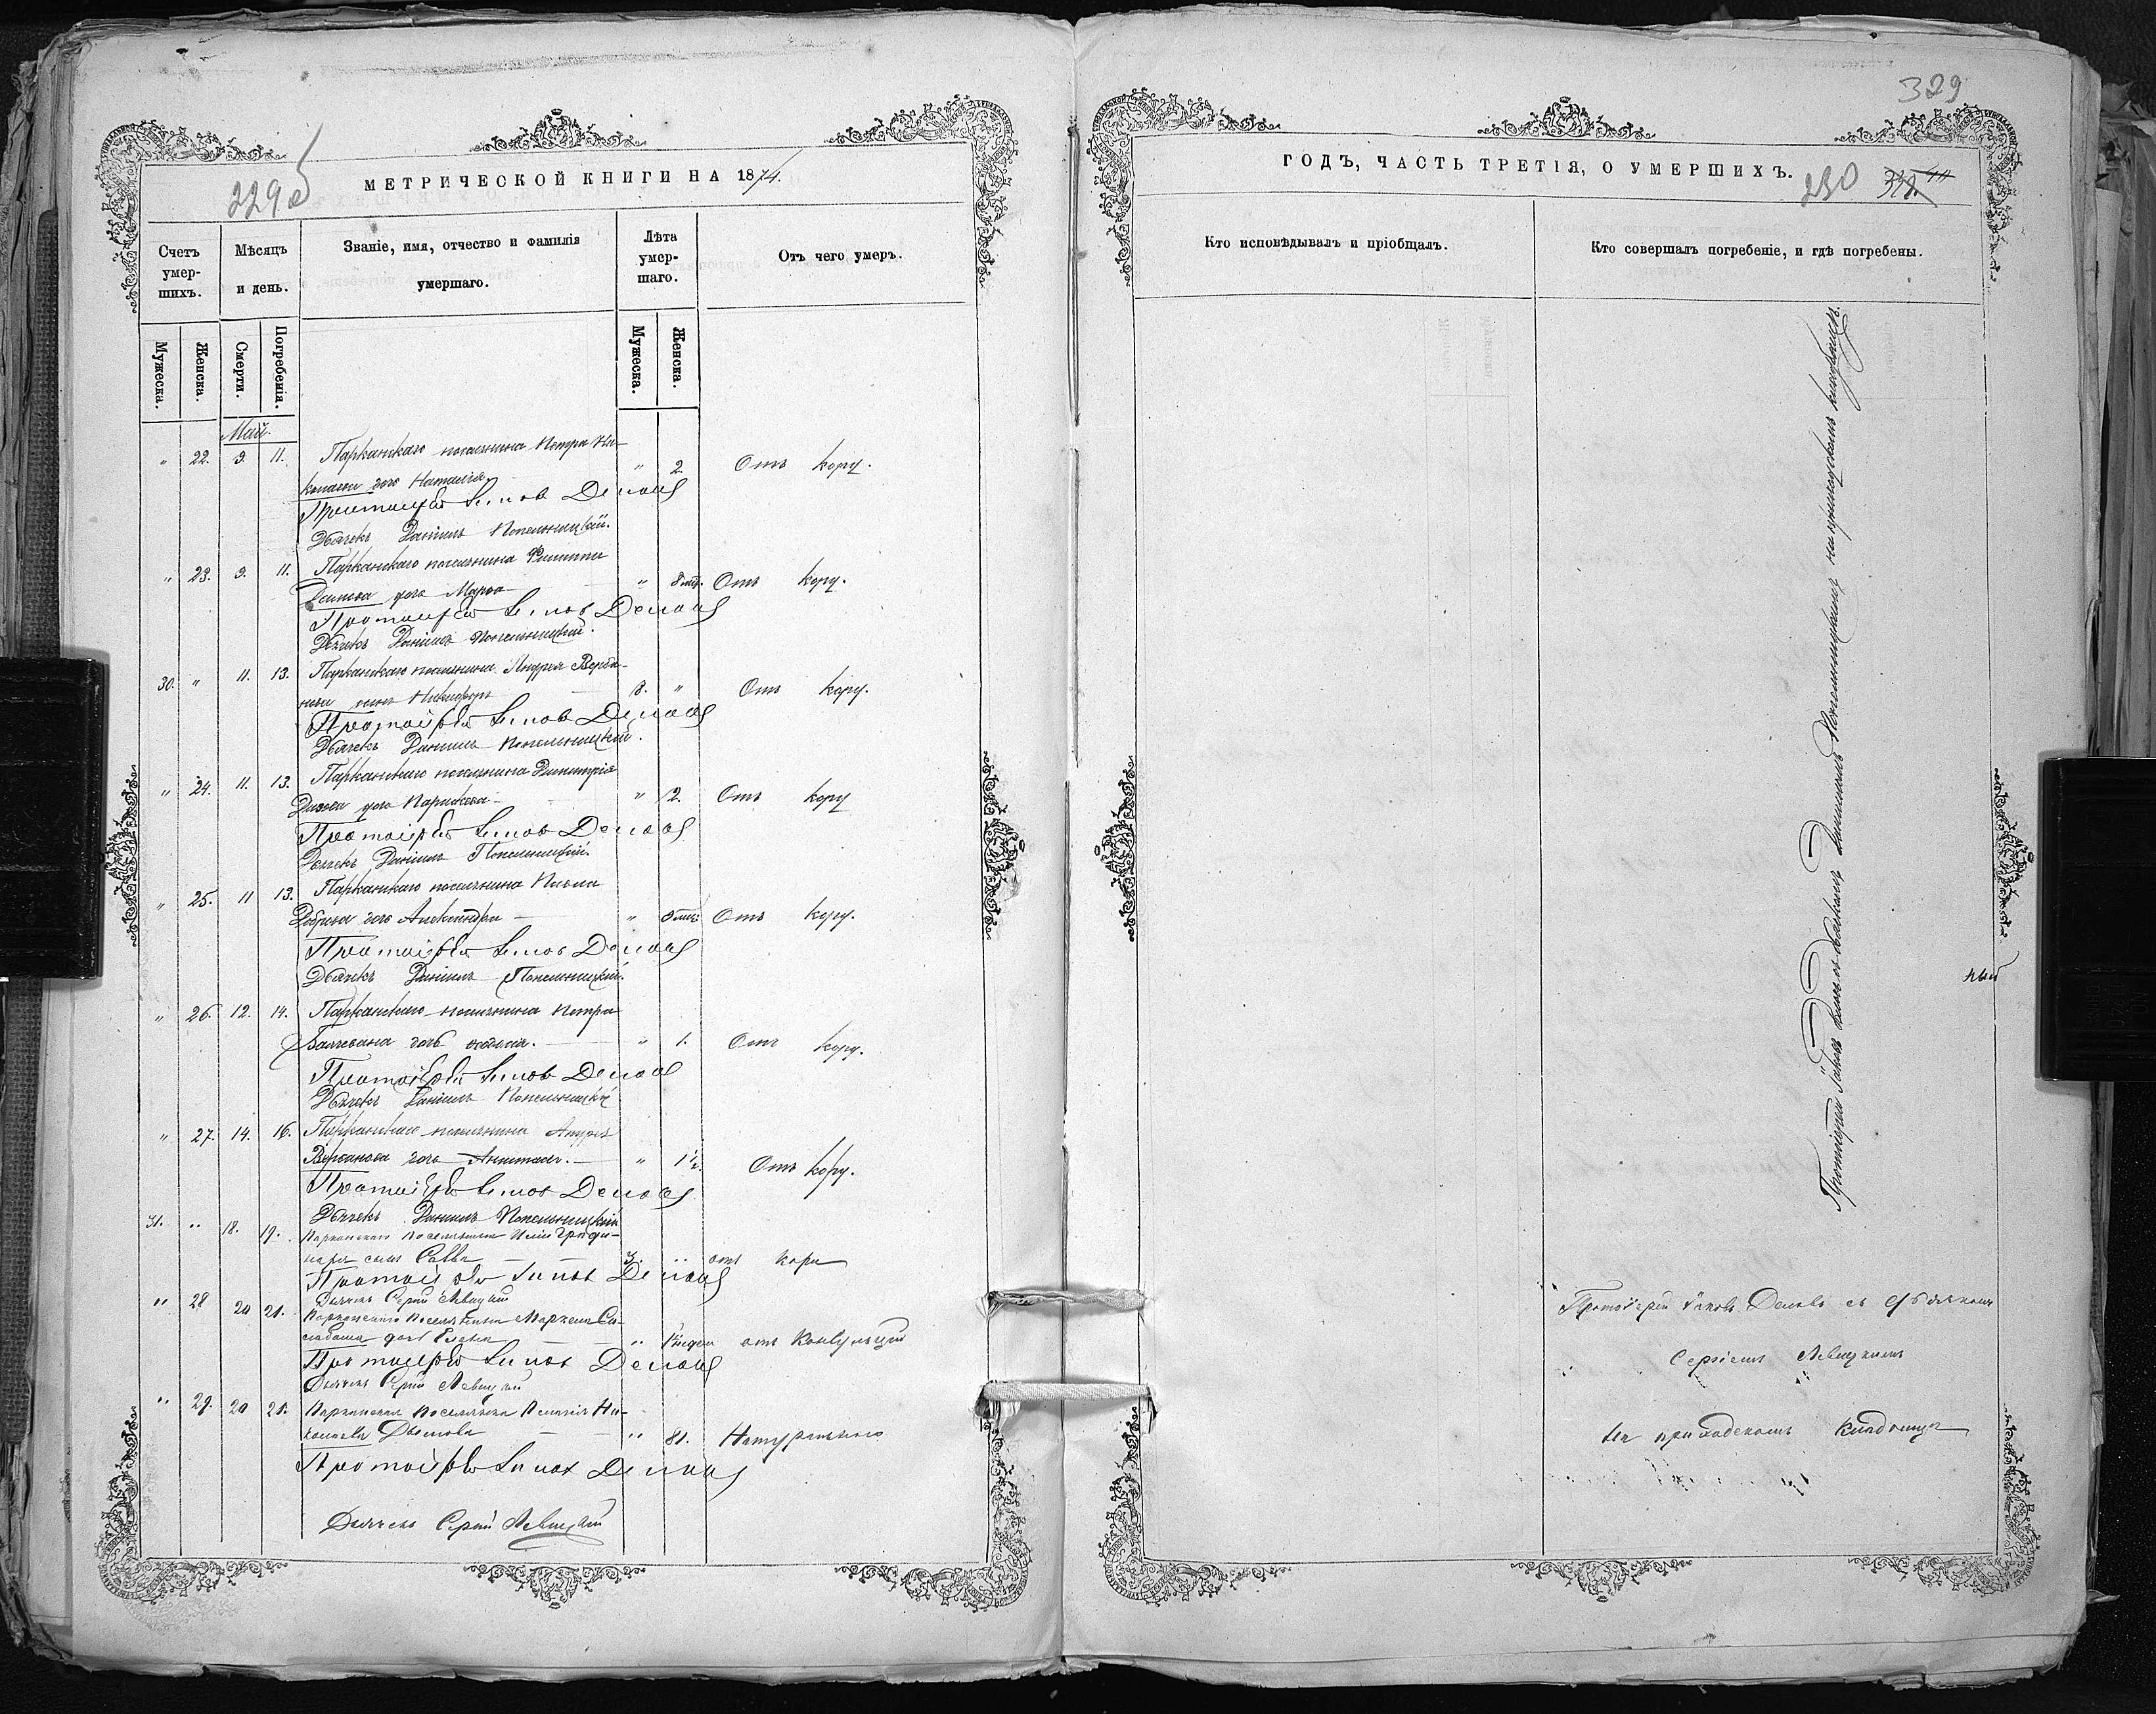 229 об
МЕТРИЧЕСКОЙ КНИГИ НА 1874.
Счетъ умер-шихъ.
Мѣсяцъ и день.
Званіе, имя, отчество и фамилія умершаго.
Лѣта умер-шаго.
Отъ чего умеръ.
Мужеска.
Женска.
Смерти.
Погребенія.
Мужеска.
Женска.
Май.
" 22. 9. 11. Парканскаго поселянина Петра Ни-
колаева дочь Наталія " 2. Отъ кору.
Протоіерей Іаковъ Деловъ
Дьячекъ Даніилъ Попельницкій.
" 23. 9. 11. Парканскаго поселянина Филиппа
дочь Марѳа " 8 мѣс. Отъ кору.
Протоіерей Іаковъ Деловъ
Дьячекъ Даніилъ Попельницкій.
30. " 11. 13. Парканскаго поселянина Андрея Верба-
нова сынъ Никифоръ 8. " Отъ кору.
Протоіерей Іаковъ Деловъ
Дьячекъ Даніилъ Попельницкій.
" 24. 11. 13. Парканскаго поселянина Димитрія
дочь " 2. Отъ кору
Протоіерей Іаковъ Деловъ
Дьячекъ Даніилъ Попельницкій.
" 25. 11 13. Парканскаго поселянина Павла
дочь Александра " мѣс. Отъ кору.
Протоіерей Іаковъ Деловъ
Дьячекъ Даніилъ Попельницкій.
" 26. 12. 14. Парканскаго поселянина Петра
дочь " 1. Отъ кору.
Протоіерей Іаковъ Деловъ
Дьячекъ Даніилъ Попельницкій
" 27. 14. 16. Парканскаго поселянина Андрея
Вербанова дочь " 1½. Отъ кору.
Протоіерей Іаковъ Деловъ
Дьячекъ Даніилъ Попельницкій
31. " 18. 19. Парканскаго поселянина Иліи
сынъ Савва 3. " отъ кори
Протоіерей Іаковъ Деловъ
Дьячекъ Сергій Левицкій
" 28 20 21. Парканскаго поселянина
дочь Елена " отъ Конвульцій
Протоіерей Іаковъ Деловъ
Дьячекъ Сергій Левицкій
" 29. 20 21. Парканская поселянка Пелагія Ни-
колаева " 81. Натурально
Протоіерей Іаковъ Деловъ
Дьячекъ Сергій Левицкій
329
ГОДЪ, ЧАСТЬ ТРЕТІЯ, О УМЕРШИХЪ.
230
Кто исповѣдывалъ и пріобщалъ.
Кто совершалъ погребеніе, и гдѣ погребены.
Протоіерей Іаковъ Деловъ съ дьячкомъ Даніиломъ Попельницкимъ на приходскомъ кладбищѣ.
ный
Протоіерей Іаковъ Деловъ съ дьячкомъ
Сергіемъ Левицкимъ
на приходскомъ кладбищѣ